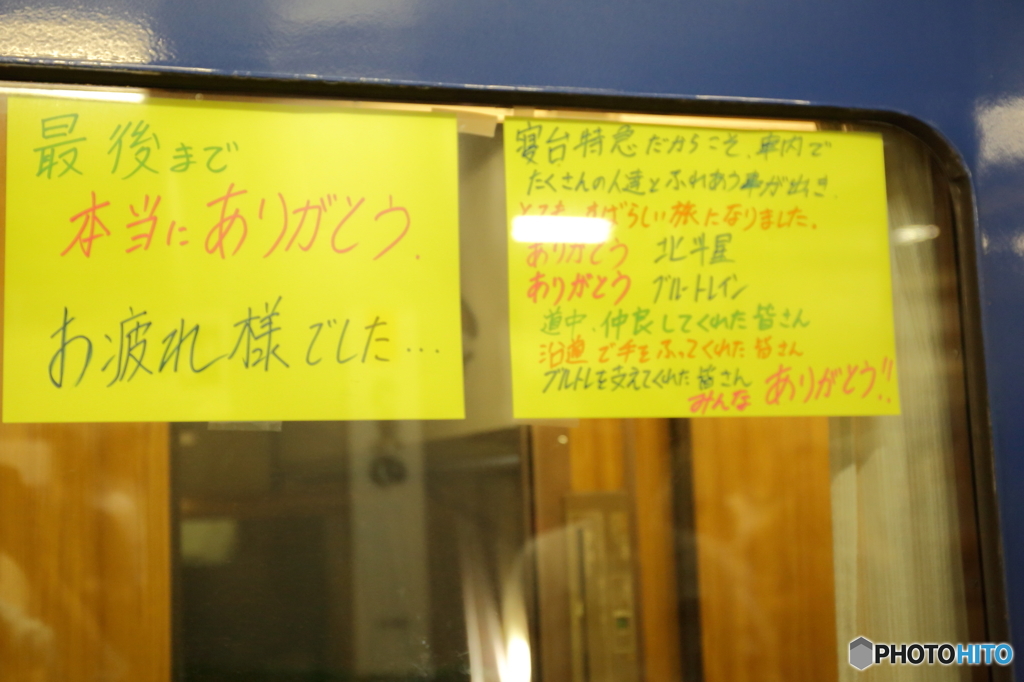 最後まで
本当にありがとう.
お疲れ様でした...
寝台特急だからこそ、車内で
たくさんの人達とふれあう事が出き
とても すばらしい旅になりました。
ありがとう 北斗星
ありがとう ブルートレイン
道中、仲良してくれた皆さん
沿道で手をふってくれた皆さん
ブルトレを支えてくれた皆さん
みんな ありがとう!!
PHOTOHITO